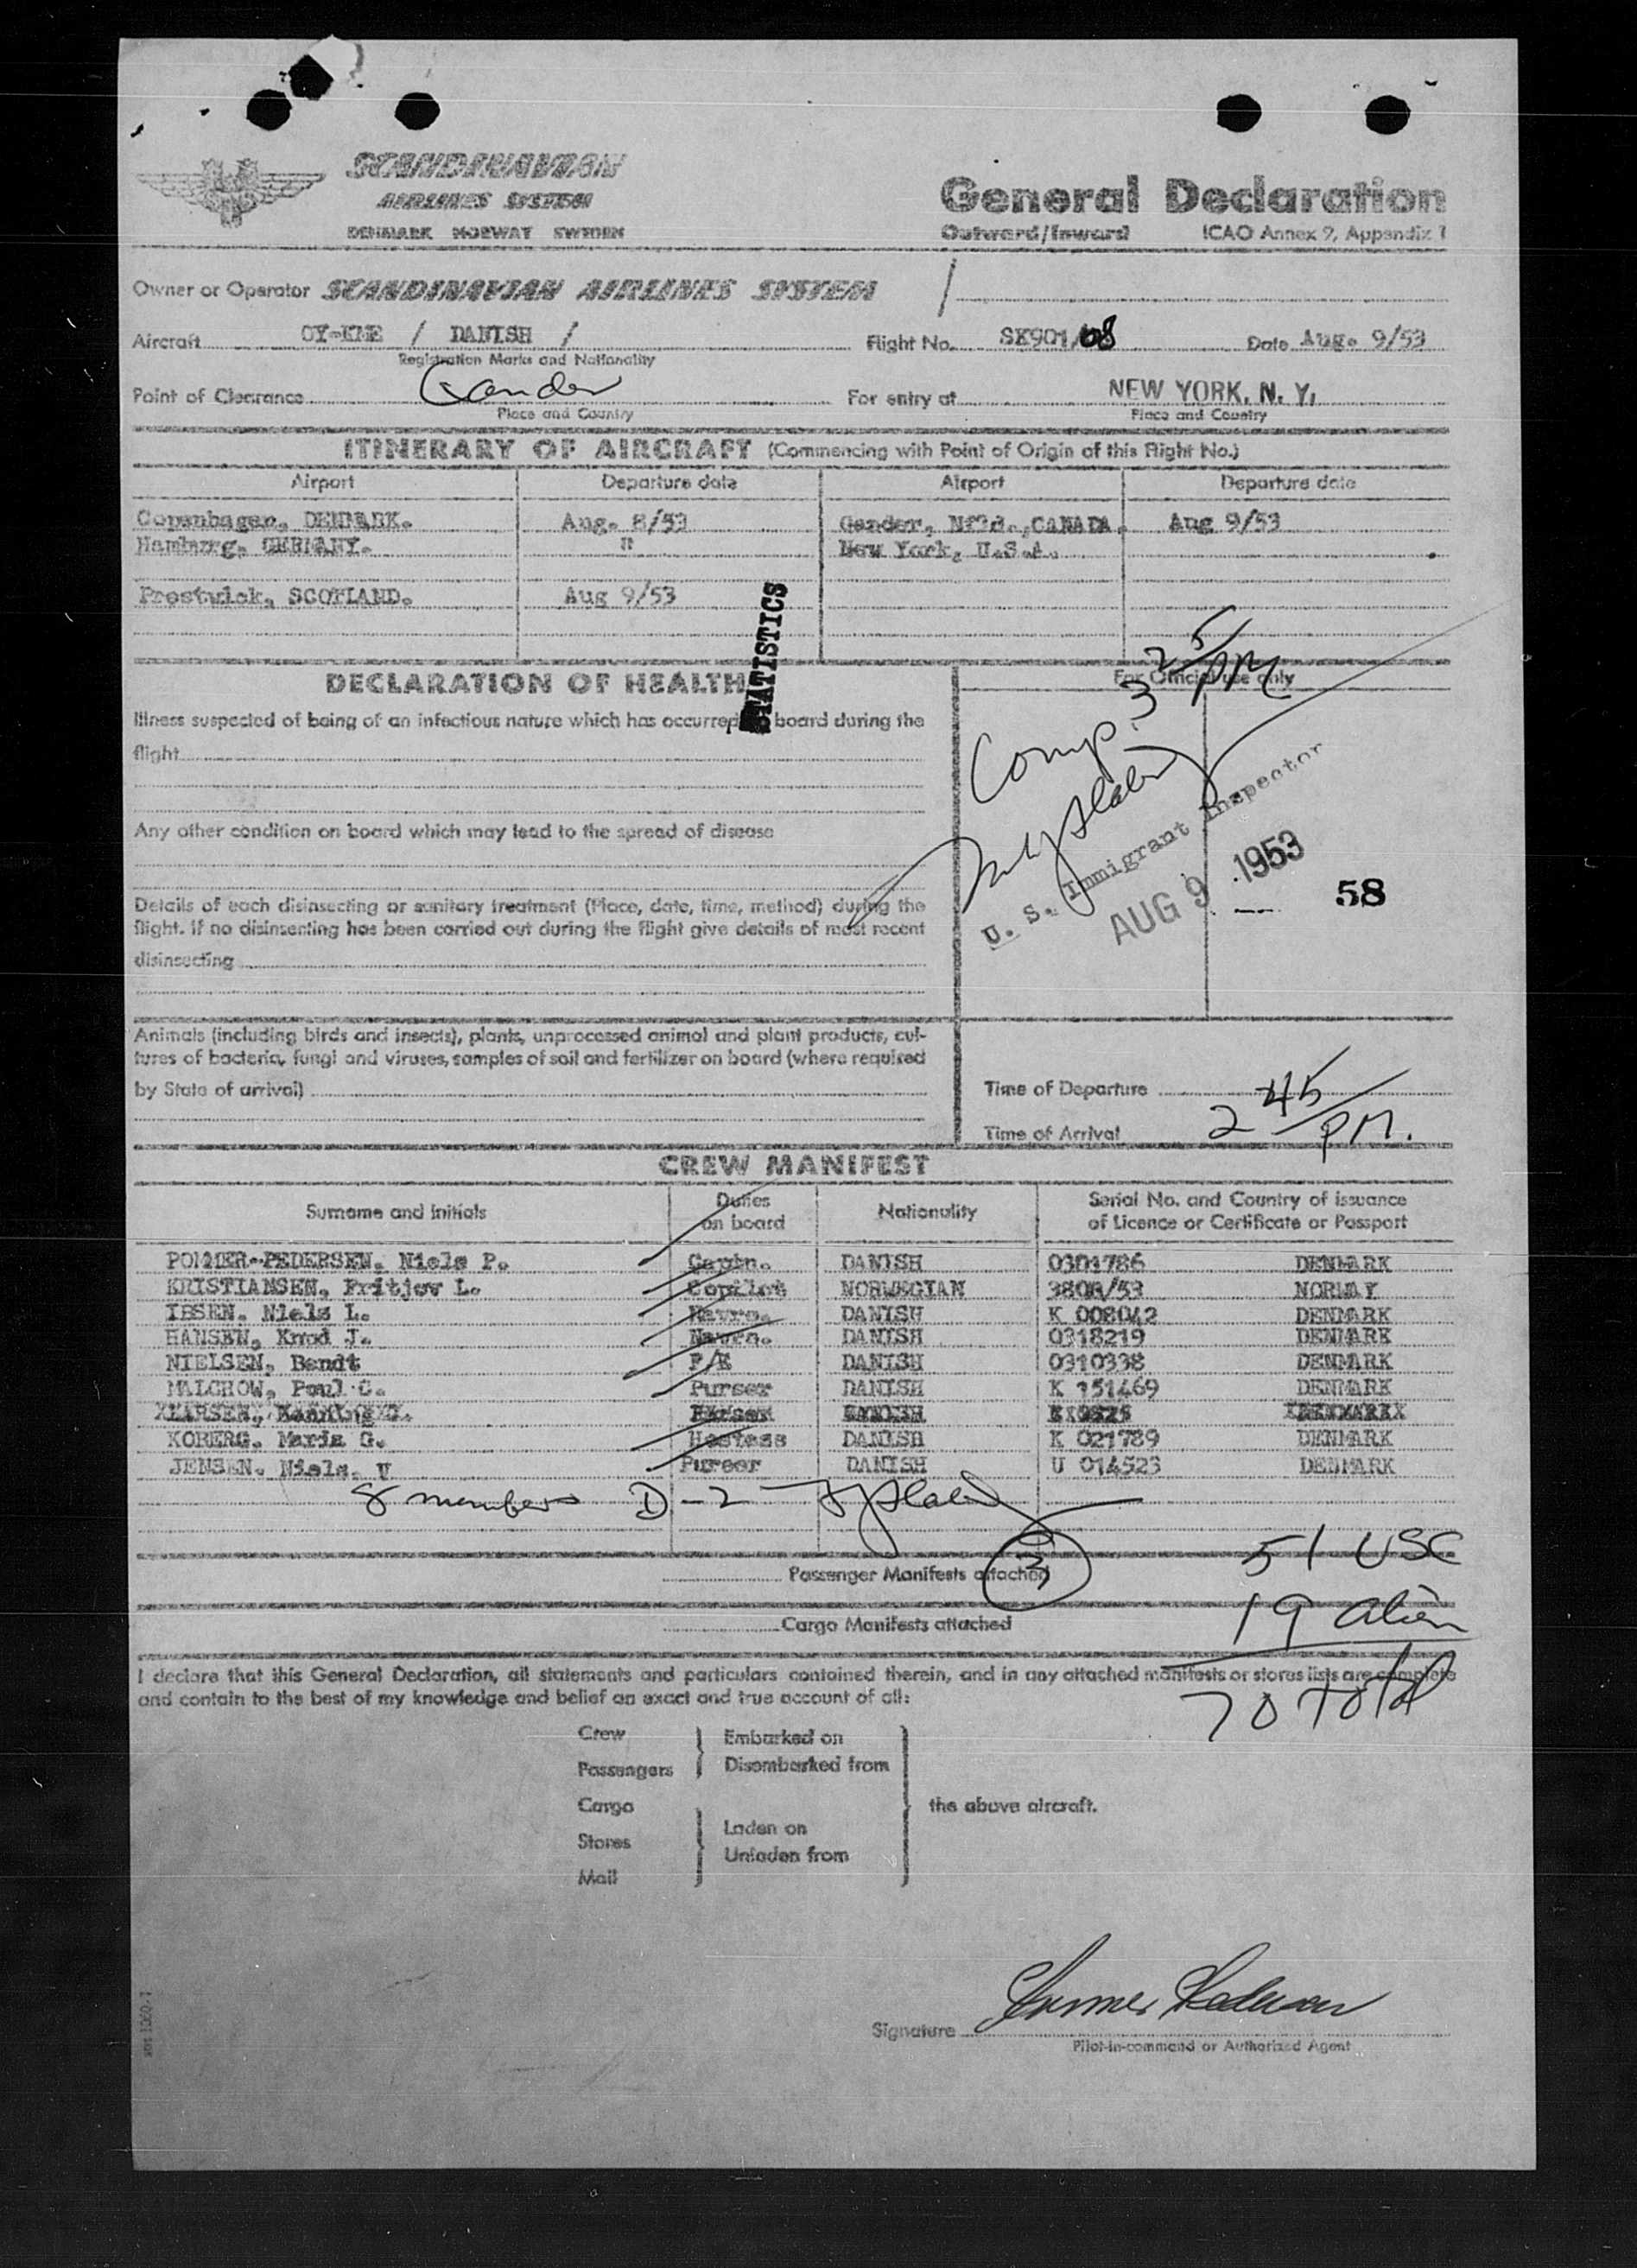 SCANDINAVIAN
AIRLINES SYSTEM
DENMARK NORWAY SWEDEN
General Declaration
Outward/Inward ICAO Annex 9, Appendix 1
Owner or Operator SCANDINAVIAN AIRLINES SYSTEM
Aircraft OY-KME / DANISH / Flight No. SK901/08 Date Aug. 9/53
Registration Marks and Nationality
Point of Clearance Gander For entry at NEW YORK, N. Y.
Place and Country Place and Country
ITINERARY OF AIRCRAFT (Commencing with Point of Origin of this Flight No.)
Airport Departure date Airport Departure date
Copenhagen, DENMARK. Aug. 8/53 Gander, Nfld., CANADA. Aug 9/53
Hamburg, GERMANY. " New York, U.S.A.
Prestwick, SCOTLAND. Aug 9/53
STATISTICS
DECLARATION OF HEALTH
For Official use only
Illness suspected of being of an infectious nature which has occurred board during the
flight
Comp. 3 25/PM
Any other condition on board which may lead to the spread of disease
U. S. Immigrant Inspector
AUG 9 1953
58
Details of each disinsecting or sanitary treatment (Place, date, time, method) during the
flight. If no disinsecting has been carried out during the flight give details of most recent
disinsecting
Animals (including birds and insects), plants, unprocessed animal and plant products, cul-
tures of bacteria, fungi and viruses, samples of soil and fertilizer on board (where required
by State of arrival)
Time of Departure
Time of Arrival 2 45/PM.
CREW MANIFEST
Surname and Initials Duties on board Nationality Serial No. and Country of issuance of Licence or Certificate or Passport
POMMER-PEDERSEN, Niels P. Captn. DANISH 0301786 DENMARK
KRISTIANSEN, Fritjov L. Copilot NORWEGIAN 380A/53 NORWAY
IBSEN, Niels L. Navro. DANISH K 008042 DENMARK
HANSEN, Knud J. Navro. DANISH 0318219 DENMARK
NIELSEN, Bendt F/E DANISH 0310338 DENMARK
MALCHOW, Poul C. Purser DANISH K 151469 DENMARK
LARSEN, Purser DANISH DENMARK
KOBERG, Maria G. Hostess DANISH K 021789 DENMARK
JENSEN, Niels. V Purser DANISH U 014523 DENMARK
8 members D-2
Passenger Manifests attached 3
51 USC
Cargo Manifests attached
19 alien
I declare that this General Declaration, all statements and particulars contained therein, and in any attached manifests or stores lists are complete
and contain to the best of my knowledge and belief an exact and true account of all:
70 total
Crew Embarked on
Passengers Disembarked from
Cargo the above aircraft.
Laden on
Stores
Unladen from
Mail
Signature Pommer Pedersen
Pilot-in-command or Authorized Agent